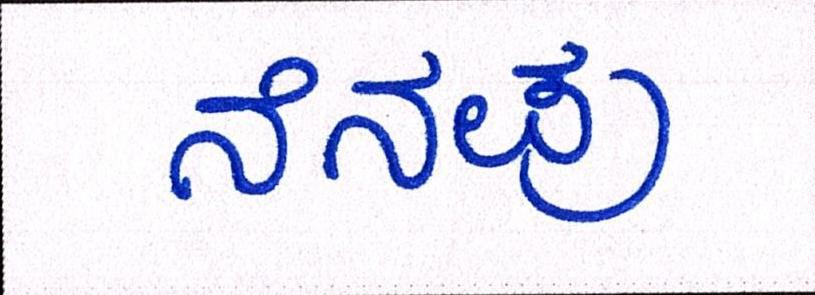 ನೆನಪು